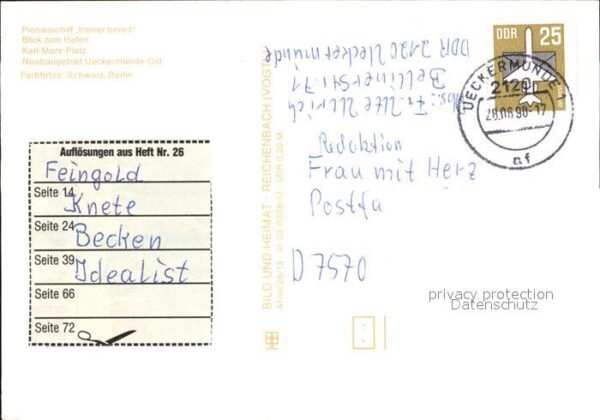 Pionierschiff „Immer bereit"
Blick zum Hafen
Karl-Marx-Platz
Neubaugebiet Ueckermünde Ost
Farbfotos: Schwarz, Berlin
Auflösungen aus Heft Nr. 26
Feingold
Seite 14
Knete
Seite 24
Becken
Seite 39
Idealist
Seite 66
Seite 72
BILD UND HEIMAT · REICHENBACH (VOGTL)
Abs.: Fr. Ute Ullrich
Belliner Str. 71
DDR 2120 Ueckermünde
DDR 25
UECKERMÜNDE 1
2120
28.06.90-17
af
Redaktion
Frau mit Herz
Postfa
D 7570
privacy protection
Datenschutz